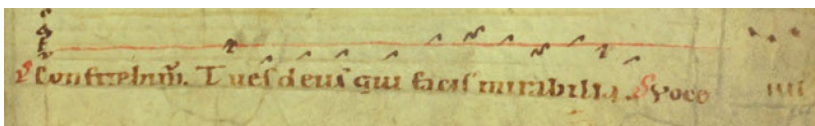 Confitebim̄. Tu es deus qui facis mirabilia. Voce